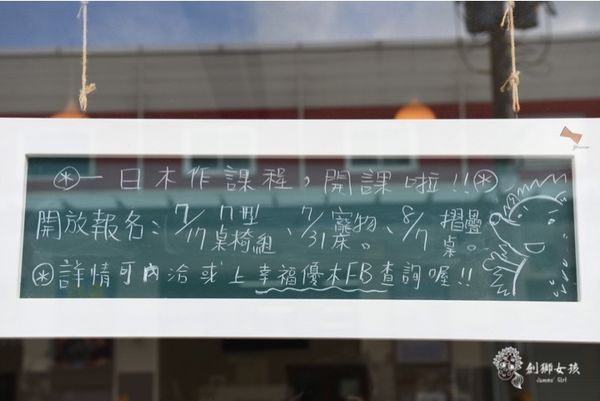 ⊛一日木作課程，開課啦!!⊛
開放報名：7/17 ㄇ型桌椅組、7/31 寵物床。、8/7 摺疊桌。
⊛詳情可內洽或上幸福優木FB查詢喔!!
創獅女孩